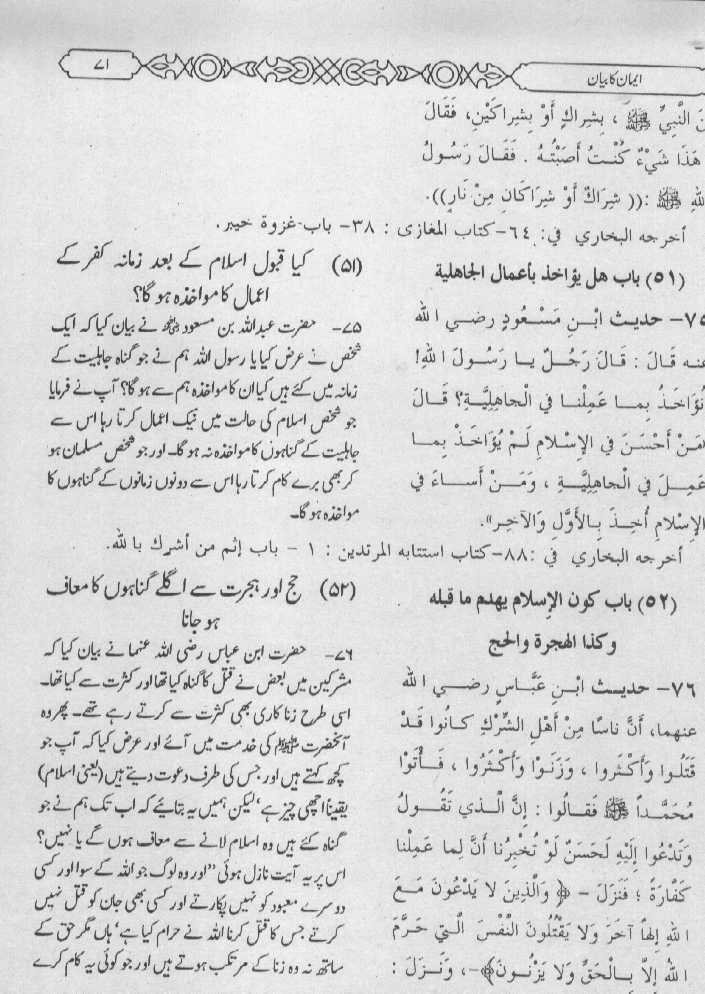 ایمان کا بیان
۷۱
النَّبِيِّ ﷺ ، بِشِراكٍ أَوْ بِشِراكَيْنِ، فَقَالَ
هَذَا شَيْءٌ كُنْتُ أَصَبْتُهُ . فَقَالَ رَسُولُ
ﷺ :(( شِرَاكٌ أَوْ شِرَاكَانِ مِنْ نَارٍ)).
أخرجه البخاري في: ٦٤-كتاب المغازى : ٣٨- باب غزوة خيبر.
(٥١) باب هل يؤاخذ بأعمال الجاهلية
٧٥- حديث ابْنِ مَسْعُودٍ رضي الله
عنه قَالَ : قَالَ رَجُلٌ يا رَسُولَ اللهِ!
نُؤَاخَذُ بِما عَمِلْنا في الْجاهِلِيَّةِ؟ قَالَ
مَنْ أَحْسَنَ في الإِسْلامِ لَمْ يُؤَاخَذْ بِما
عَمِلَ في الْجاهِلِيَّةِ ، وَمَنْ أَساءَ في
الإِسْلامِ أُخِذَ بِالأَوَّلِ وَالآخِرِ».
(۵۱) کیا قبول اسلام کے بعد زمانہ کفر کے
اعمال کا مواخذہ ہو گا؟
۷۵- حضرت عبداللہ بن مسعود ؓ نے بیان کیا کہ ایک
شخص نے عرض کیا یا رسول اللہ ہم نے جو گناہ جاہلیت کے
زمانہ میں کئے ہیں کیا ان کا مواخذہ ہم سے ہو گا؟ آپ نے فرمایا
جو شخص اسلام کی حالت میں نیک اعمال کرتا رہا اس سے
جاہلیت کے گناہوں کا مواخذہ نہ ہو گا۔ اور جو شخص مسلمان ہو
کر بھی برے کام کرتا رہا اس سے دونوں زمانوں کے گناہوں کا
مواخذہ ہو گا۔
أخرجه البخاري في :٨٨-كتاب استتابه المرتدين : ١ - باب إثم من أشرك بالله.
(٥٢) باب كون الإسلام يهدم ما قبله
وكذا الهجرة والحج
٧٦- حديث ابْنِ عَبَّاسٍ رضي الله
عنهما، أَنَّ ناسًا مِنْ أَهْلِ الشِّرْكِ كانُوا قَدْ
قَتَلُوا وَأَكْثَروا ، وَزَنَوْا وَأَكْثَرُوا ، فَأَتَوْا
مُحَمَّداً ﷺ فَقالُوا : إِنَّ الَّذي تَقُولُ
وَتَدْعُوا إِلَيْهِ لَحَسَنٌ لَوْ تُخْبِرُنا أَنَّ لِما عَمِلْنا
كَفَّارَةً ؛ فَنَزَلَ - ﴿ وَالَّذِينَ لا يَدْعُونَ مَعَ
اللهِ إِلهاً آخَرَ وَلا يَقْتُلُونَ النَّفْسَ الَّتي حَرَّمَ
اللهُ إِلاَّ بِالْحَقِّ وَلا يَزْنُونَ﴾-، وَنَزَلَ :
(۵۲) حج اور ہجرت سے اگلے گناہوں کا معاف
ہو جانا
۷۶- حضرت ابن عباس رضی اللہ عنہما نے بیان کیا کہ
مشرکین میں بعض نے قتل کا گناہ کیا تھا اور کثرت سے کیا تھا۔
اسی طرح زنا کاری بھی کثرت سے کرتے رہے تھے۔ پھر وہ
آنحضرت ﷺ کی خدمت میں آئے اور عرض کیا کہ آپ جو
کچھ کہتے ہیں اور جس کی طرف دعوت دیتے ہیں (یعنی اسلام)
یقیناً اچھی چیز ہے' لیکن ہمیں یہ بتائیے کہ اب تک ہم نے جو
گناہ کئے ہیں وہ اسلام لانے سے معاف ہوں گے یا نہیں؟
اس پر یہ آیت نازل ہوئی ''اور وہ لوگ جو اللہ کے سوا اور کسی
دوسرے معبود کو نہیں پکارتے اور کسی بھی جان کو قتل نہیں
کرتے جس کا قتل کرنا اللہ نے حرام کیا ہے' ہاں مگر حق کے
ساتھ نہ وہ زنا کے مرتکب ہوتے ہیں اور جو کوئی یہ کام کرے